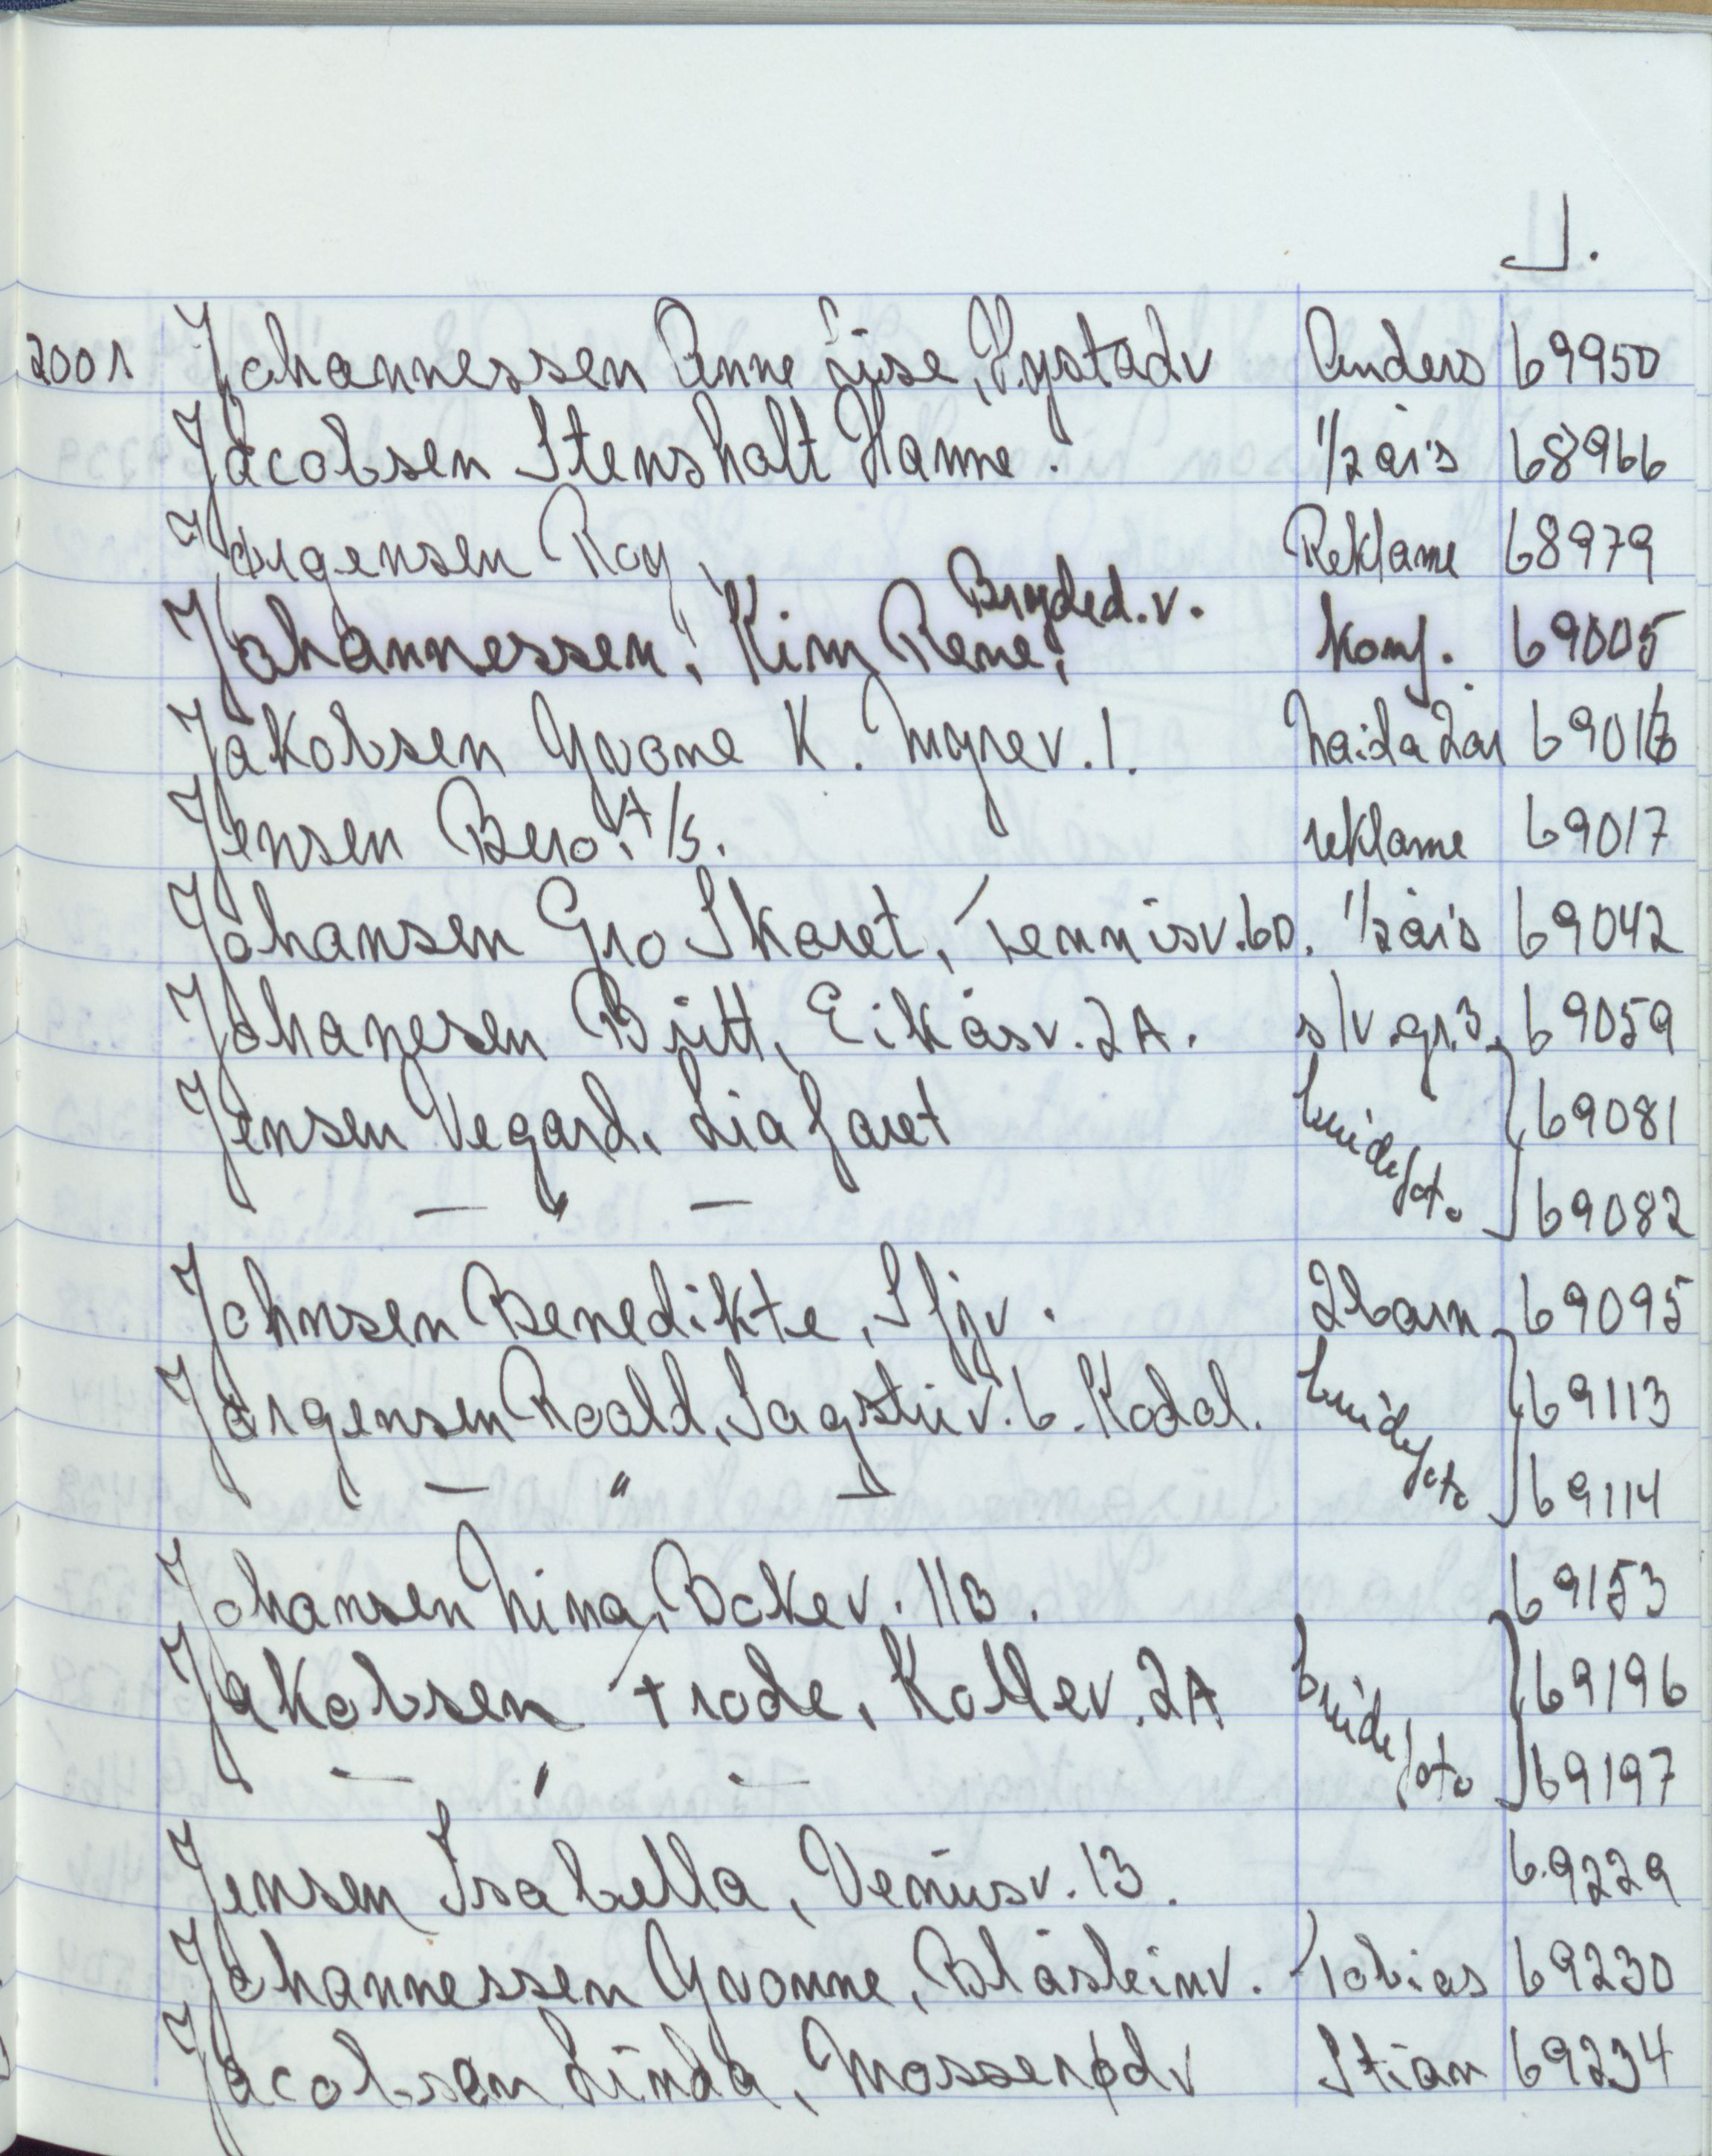 J.
2001 Johannessen Anne Lise, Nystadv Anders 69950
Jacobsen Stensholt Hanne. 1/2 års 68966
Jørgensen Roy, Reklame 68979
Bryded.v.
Johannessen, Kim Rene, konf. 69005
Jakobsen Yvone K. Myrev.1. Naida 2år 69016
Jensen Bero. A/S. reklame 69017
Johansen Gro Skaret, Tennisv.6D. 1/2 års 69042
Johanesen Britt, Eikåsv. 2A. s/v.gr.3. 69059
Jensen Vegard, Liafaret brudefoto 69081
— " — 69082
Johnsen Benedikte, Sfjv. 2barn 69095
Jørgensen Roald, Sagsliv. 6. Kodal. brudefoto 69113
— " — 69114
Johansen Nina, Bokev. 11B. 69153
Jakobsen Frode, Kollev. 2A brudefoto 69196
— " — 69197
Jensen Isabella, Venusv. 13. 69229
Johannessen Yvonne, Blåsteinv. Tobias 69230
Jacobsen Linda, Mosserødv Stian 69234